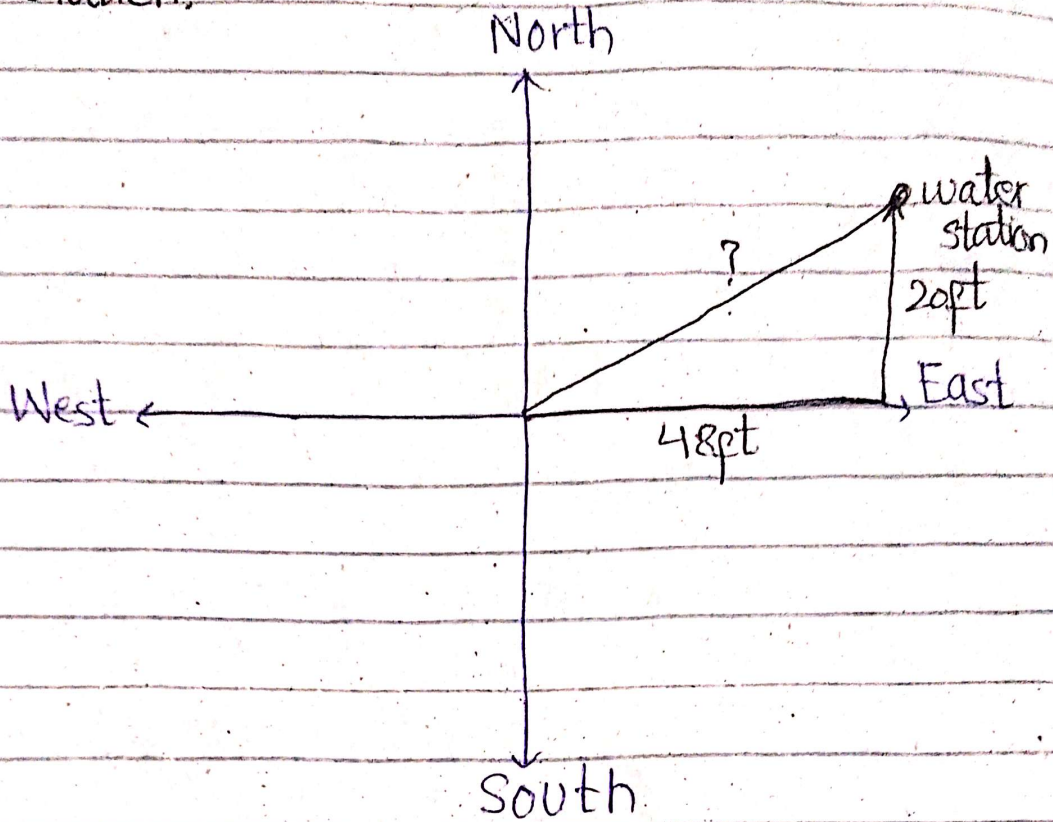 North
water
station
?
20ft
West
East
48ft
South